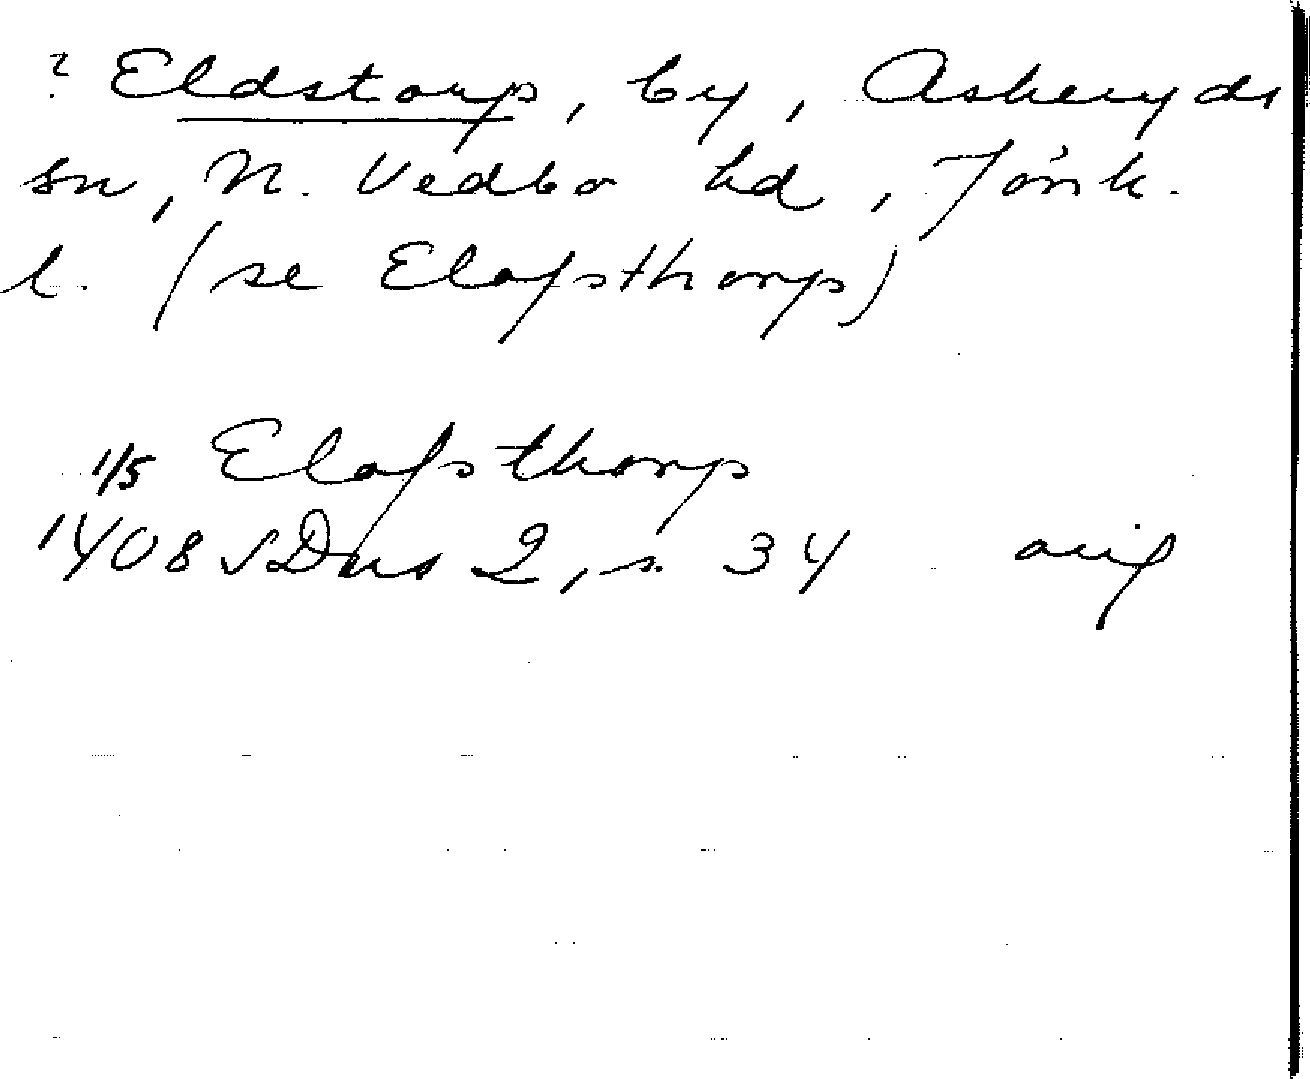 ? Eldstorp, by, Askeryds
sn, N. Vedbo hd, Jönk.
l. (se Elafsthorp)
1/5 Elafsthorp
1408 SDns 2, s. 34 orig